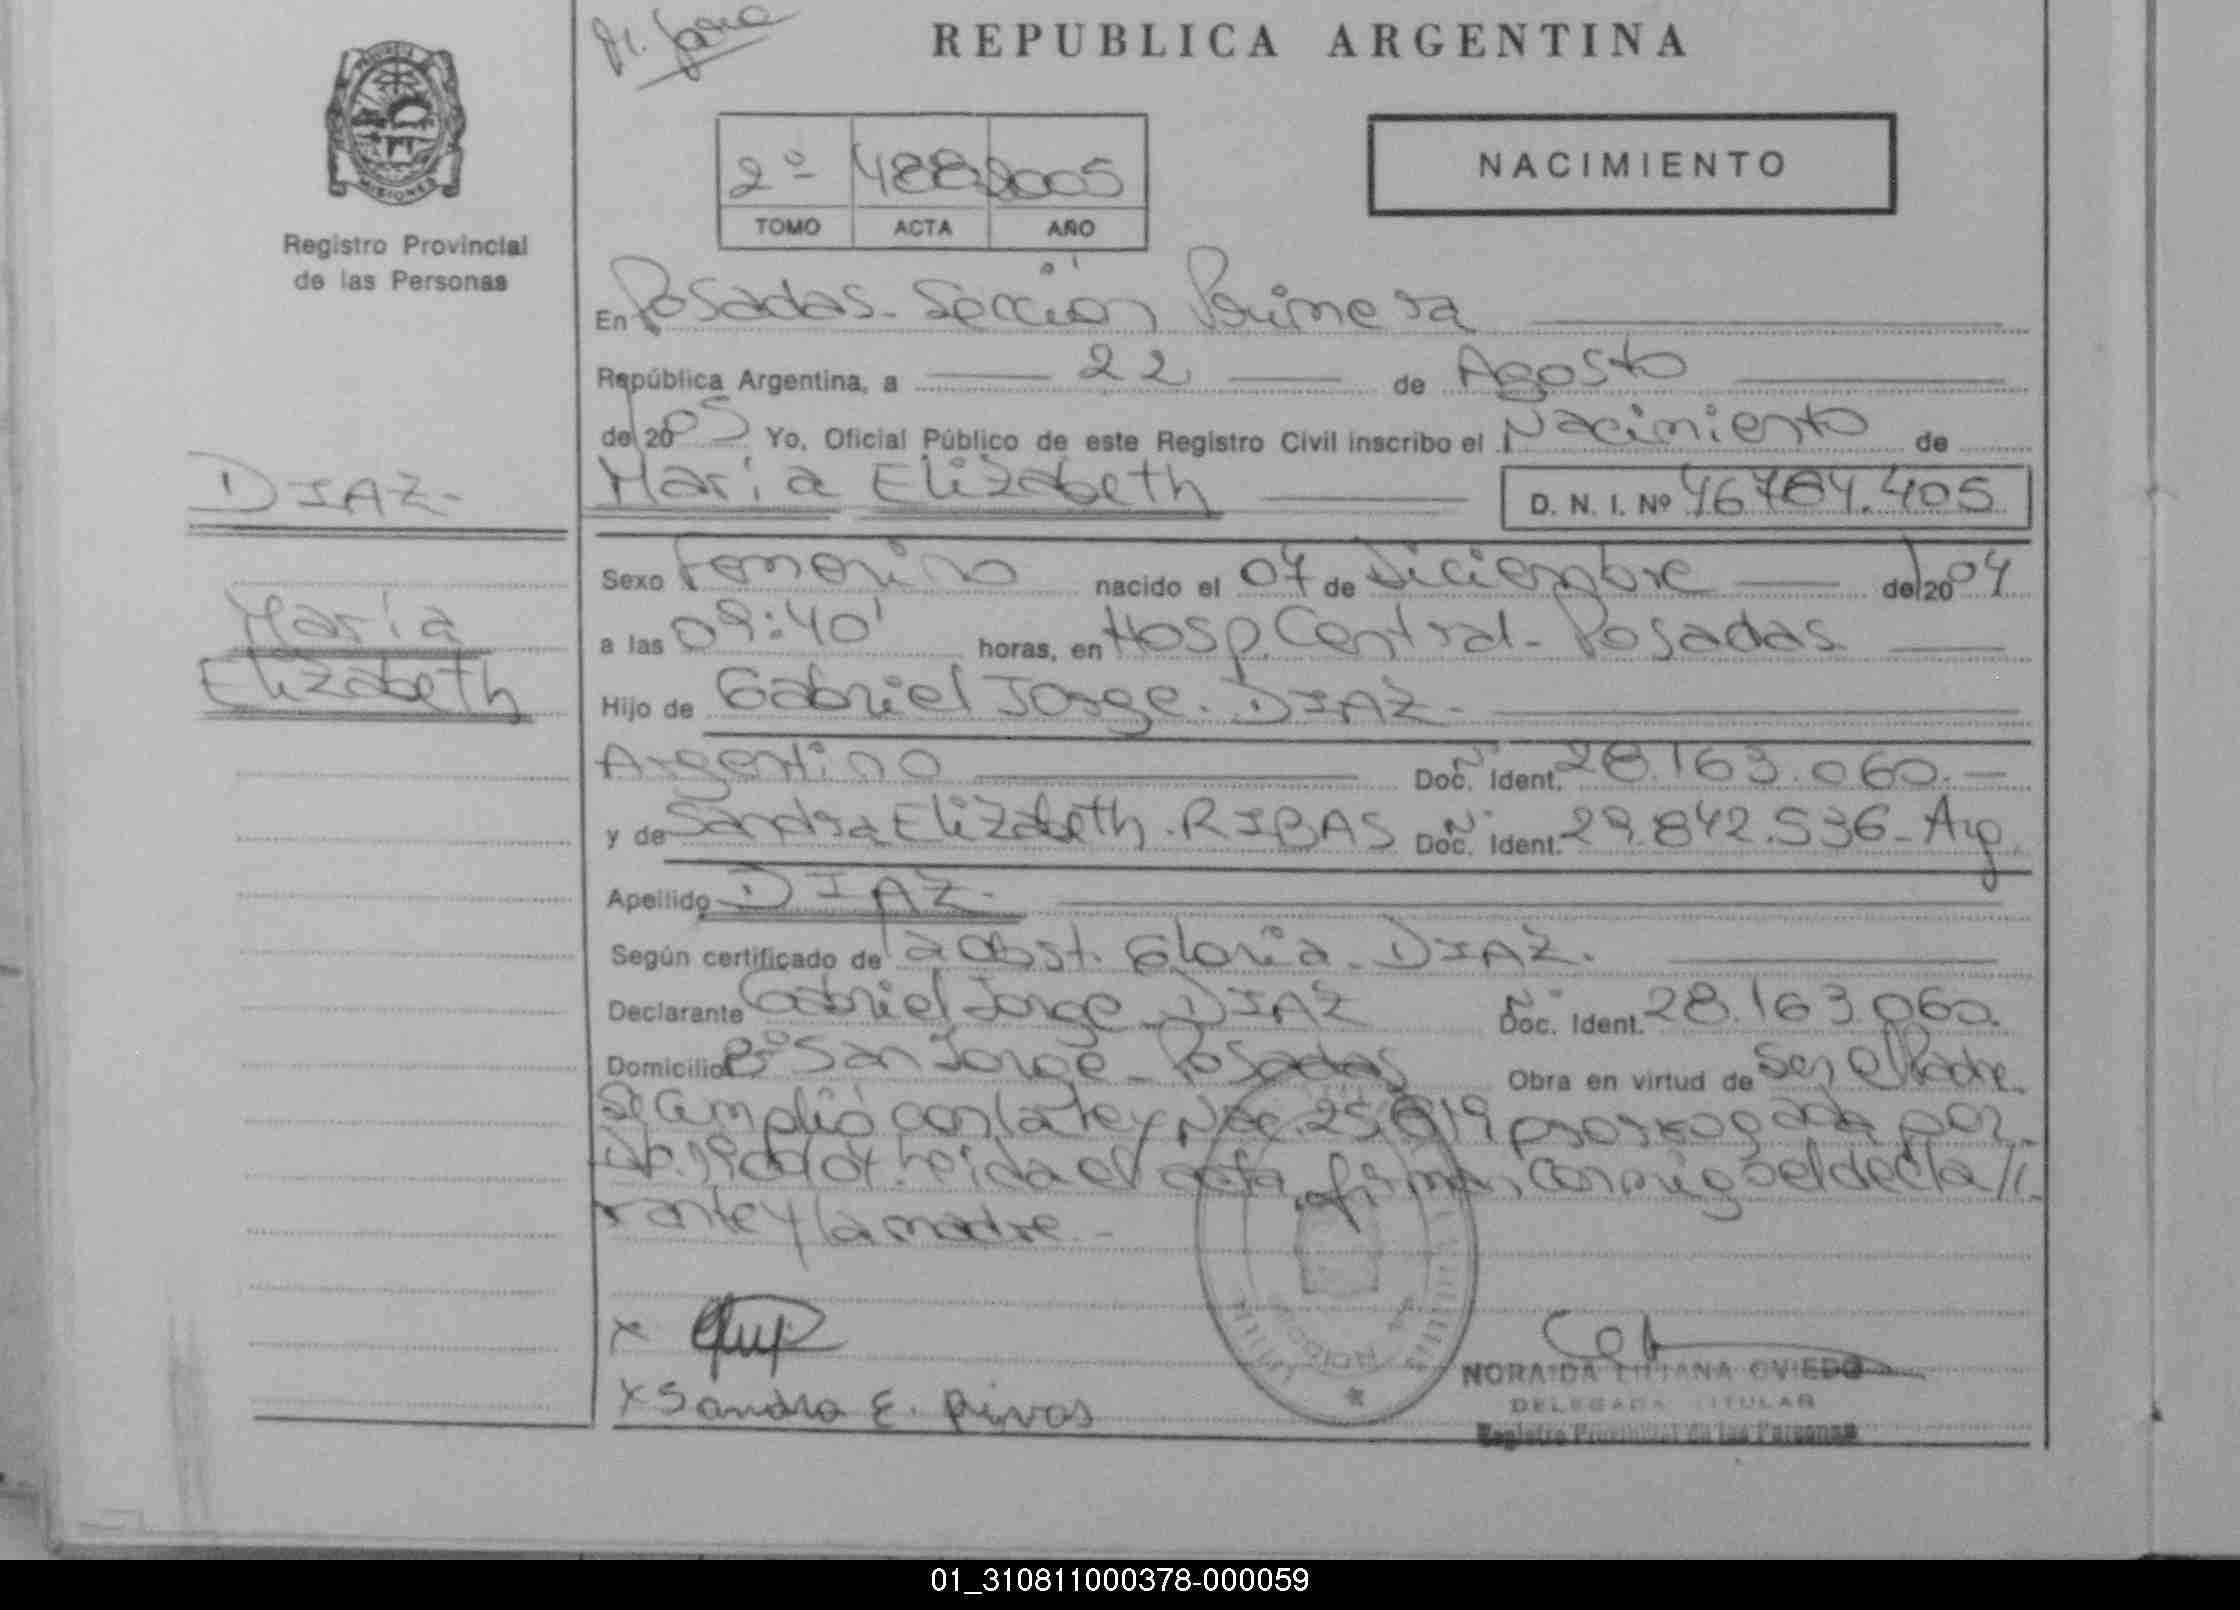 REPUBLICA ARGENTINA
2º 488 2005
TOMO ACTA AÑO
NACIMIENTO
MISIONES
Registro Provincial
de las Personas
En Posadas - Sección Primera
República Argentina, a 22 de Agosto
del 2005 Yo, Oficial Público de este Registro Civil inscribo el Nacimiento de
María Elizabeth D. N. I. Nº 46784.405
DIAZ-
María
Elizabeth
Sexo Femenino nacido el 04 de Diciembre del 2004
a las 09:40' horas, en Hosp. Central - Posadas
Hijo de Gabriel Jorge. DIAZ.
Argentino Doc. Ident. Nº 28.163.060.-
y de Sandra Elizabeth. RIBAS Doc. Ident. Nº 29.842.536- Arg
Apellido DIAZ-
Según certificado de la Obst. Gloria. DIAZ.
Declarante Gabriel Jorge. DIAZ Doc. Ident. Nº 28.163.060.
Domicilio Bº San Jorge - Posadas Obra en virtud de Ser el Padre
Se cumplió con la Ley Nac. 25.819 prorrogada por
Leida el acta, firman conmigo el decla//
rante y la madre.-
x
x Sandra E. Rivas
NORAIDA LILIANA OVIEDO
DELEGADA TITULAR
Registro Provincial de las Personas
01_310811000378-000059